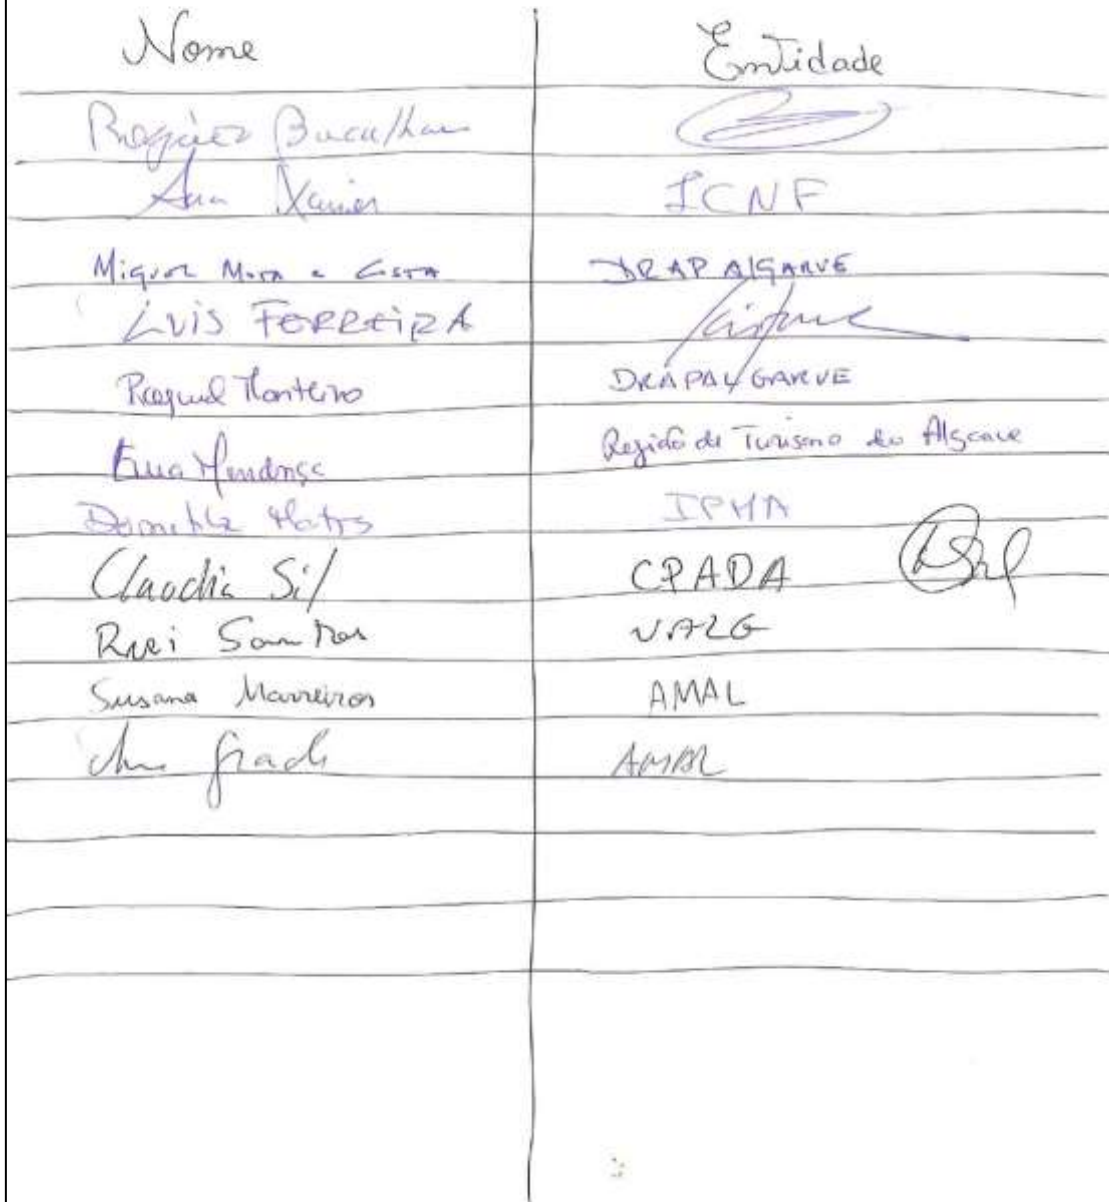 Nome Entidade
Rogério Bacalhau
Ana Xavier ICNF
Miguel Mota e Costa DRAP ALGARVE
LUIS FERREIRA
Raquel Monteiro DRAPALGARVE
Região de Turismo do Algarve
Matos IPMA
Claudia Sil CPADA
Rui Santos UALG
Susana Marreiros AMAL
AMAL